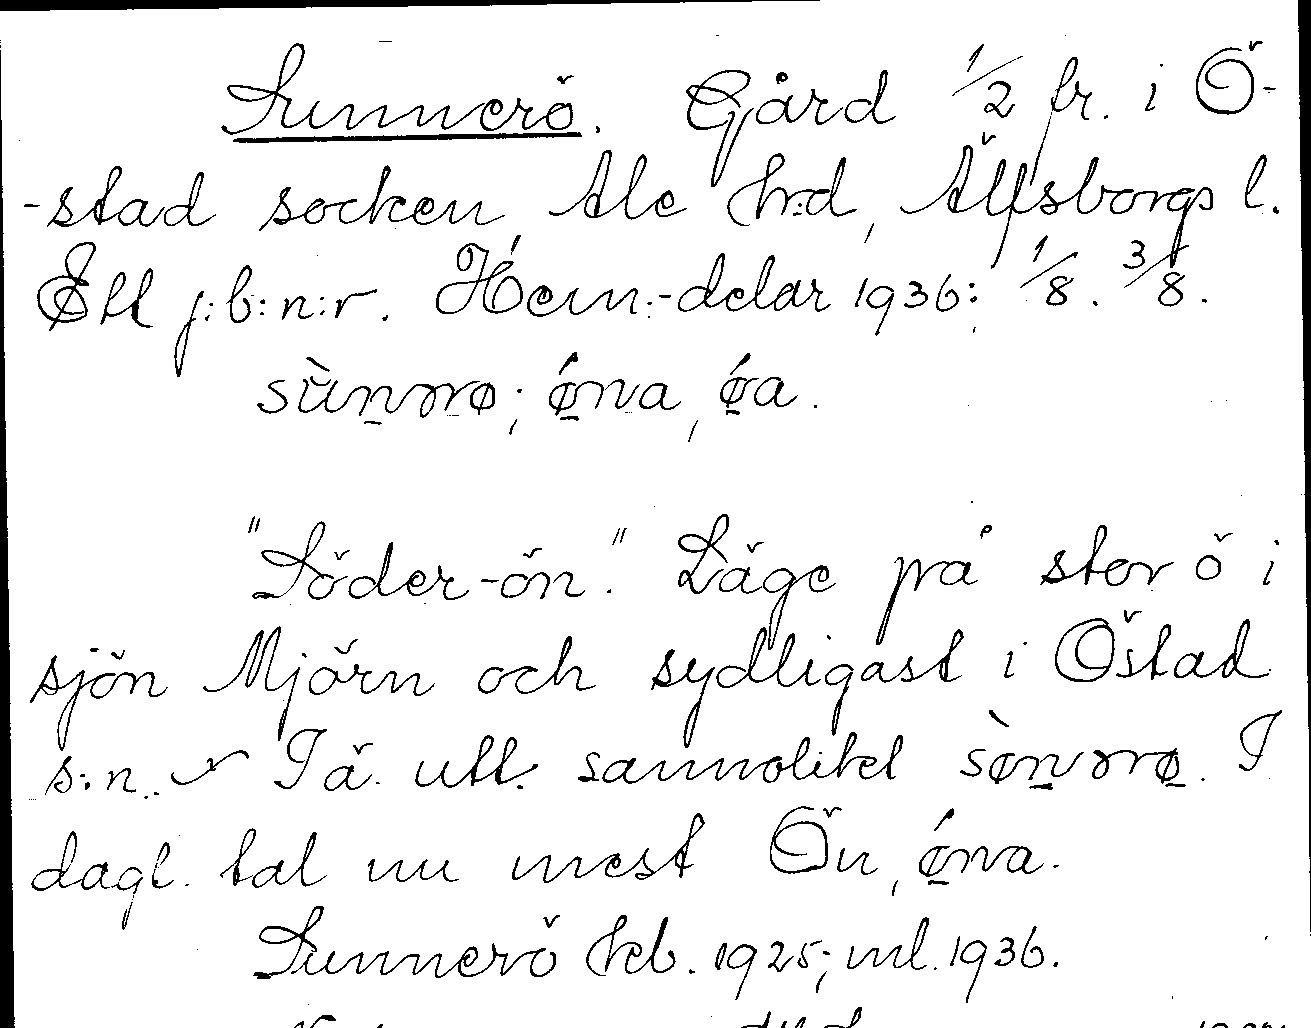 Sunnerö. Gård 1/2 fr. i Ö-
-stad socken, Ale h:d, Älfsborgs l.
Ett j:b:n:r. Hem:-delar 1936: 1/8. 3/8.
"Söder-ön." Läge på stor ö i
sjön Mjörn och sydligast i Östad
s:n. I ä. utt. sannolikt. I
dagl. tal nu mest Ön,
Sunnerö kb. 1925; ml. 1936.